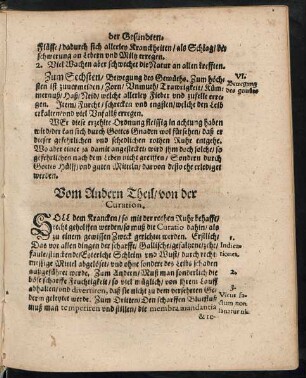 der Gesunden.
Flüsse / dadurch sich allerley Kranckheiten / als Schlag / be
schwerung an Ledern und Miltz erregen.
2. Viel Wachen aber schwechet die Natur an allen krefften.
Zum Sechsten / Bewegung des Gemüths. Zum höch-
sten ist zuuermeiden / Zorn / Unmuth / Trawrigkeit / Küm-
mernuß / Haß / Neid / welche allerley Fieber und zufelle erre-
gen. Item / Furcht / schrecken und engsten / welche den Leib
erkalten / und viel Unfalls erregen.
VI.
Bewegung
des gemüts
Wer diese erzehlte Ordnung fleissig in achtung haben
wird / der kan sich durch Gottes Gnaden wol fürsehen / daß er
dieser gefehrlichen und schedlichen rothen Ruhr entgehe.
Wo aber einer ja damit angesteckt wird / ihm doch solche / so
gefehrlichen nach dem Leben nicht greiffen / Sondern durch
Gottes Hülff / und guten Mitteln / darvon desto ehr erlediget
werden.
Vom Andern Theil / von der
Curation.
Soll dem Krancken / so mit der rothen Ruhr behafft /
recht geholffen werden / so muß die Curatio dahin / als
zu einem gewissen Zweck gerichtet werden. Erstlich /
Das vor allen dingen der scharffe / Gallische /
1. Indica-
tiones.
messige Mittel abgelöset / und ohne sondere des Leibs schaden
außgeführet werde. Zum Andern / Muß man sonderlich die
böse scharffe Feuchtigkeit / so viel müglich / von ihrem Lauff
abhalten / und divertiren, daß sie nicht zu dem versehrten Ge-
derm geleytet werde. Zum Dritten / Den scharffen Blutfluß
muß man temperiren und stillen / die membra mandantia
2.
3.
&c-